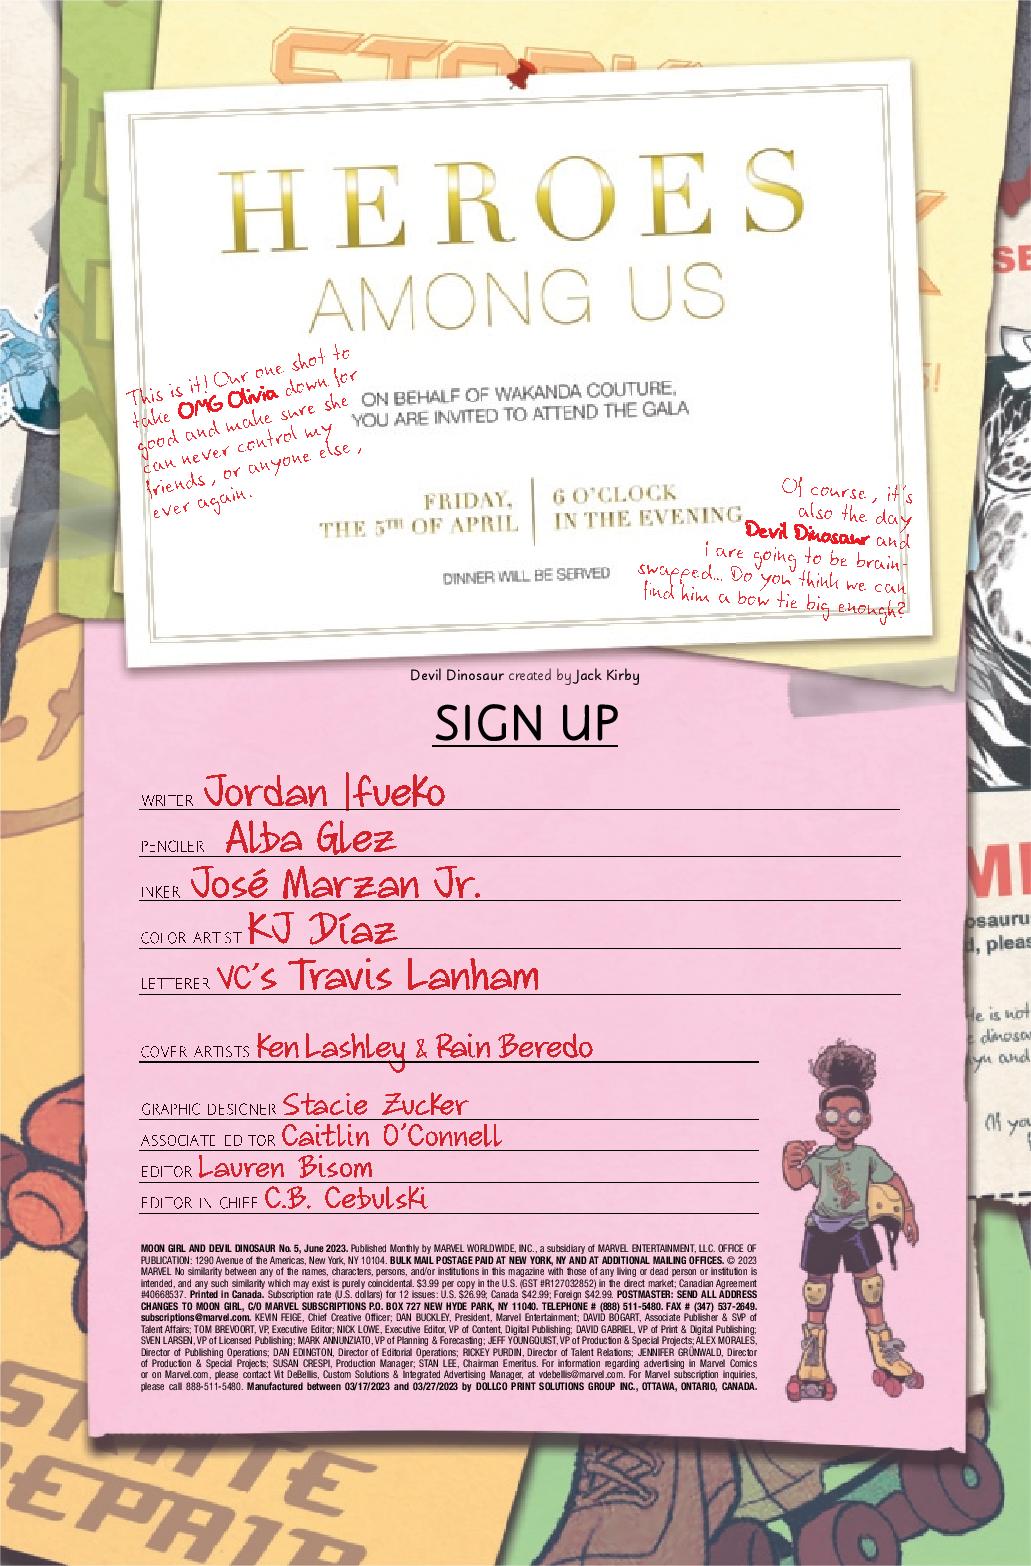 HEROES
AMONG US
This is it! Our one shot to
take OMG Olivia down for
good and make sure she
can never control my
friends, or anyone else,
ever again.
ON BEHALF OF WAKANDA COUTURE,
YOU ARE INVITED TO ATTEND THE GALA
FRIDAY,
THE 5TH OF APRIL
6 O'CLOCK
IN THE EVENING
DINNER WILL BE SERVED
Of course, it's
also the day
Devil Dinosaur and
i are going to be brain-
swapped... Do you think we can
find him a bow tie big enough?
Devil Dinosaur created by Jack Kirby
SIGN UP
WRITER Jordan Ifueko
PENCILER Alba Glez
INKER José Marzan Jr.
COLOR ARTIST KJ Díaz
LETTERER VC's Travis Lanham
COVER ARTISTS Ken Lashley & Rain Beredo
GRAPHIC DESIGNER Stacie Zucker
ASSOCIATE EDITOR Caitlin O'Connell
EDITOR Lauren Bisom
EDITOR IN CHIEF C.B. Cebulski
MOON GIRL AND DEVIL DINOSAUR No. 5, June 2023. Published Monthly by MARVEL WORLDWIDE, INC., a subsidiary of MARVEL ENTERTAINMENT, LLC. OFFICE OF
PUBLICATION: 1290 Avenue of the Americas, New York, NY 10104. BULK MAIL POSTAGE PAID AT NEW YORK, NY AND AT ADDITIONAL MAILING OFFICES. © 2023
MARVEL No similarity between any of the names, characters, persons, and/or institutions in this magazine with those of any living or dead person or institution is
intended, and any such similarity which may exist is purely coincidental. $3.99 per copy in the U.S. (GST #R127032852) in the direct market; Canadian Agreement
#40668537. Printed in Canada. Subscription rate (U.S. dollars) for 12 issues: U.S. $26.99; Canada $42.99; Foreign $42.99. POSTMASTER: SEND ALL ADDRESS
CHANGES TO MOON GIRL, C/O MARVEL SUBSCRIPTIONS P.O. BOX 727 NEW HYDE PARK, NY 11040. TELEPHONE # (888) 511-5480. FAX # (347) 537-2649.
subscriptions@marvel.com. KEVIN FEIGE, Chief Creative Officer; DAN BUCKLEY, President, Marvel Entertainment; DAVID BOGART, Associate Publisher & SVP of
Talent Affairs; TOM BREVOORT, VP, Executive Editor; NICK LOWE, Executive Editor, VP of Content, Digital Publishing; DAVID GABRIEL, VP of Print & Digital Publishing;
SVEN LARSEN, VP of Licensed Publishing; MARK ANNUNZIATO, VP of Planning & Forecasting; JEFF YOUNGQUIST, VP of Production & Special Projects; ALEX MORALES,
Director of Publishing Operations; DAN EDINGTON, Director of Editorial Operations; RICKEY PURDIN, Director of Talent Relations; JENNIFER GRÜNWALD, Director
of Production & Special Projects; SUSAN CRESPI, Production Manager; STAN LEE, Chairman Emeritus. For information regarding advertising in Marvel Comics
or on Marvel.com, please contact Vit DeBellis, Custom Solutions & Integrated Advertising Manager, at vdebellis@marvel.com. For Marvel subscription inquiries,
please call 888-511-5480. Manufactured between 03/17/2023 and 03/27/2023 by DOLLCO PRINT SOLUTIONS GROUP INC., OTTAWA, ONTARIO, CANADA.